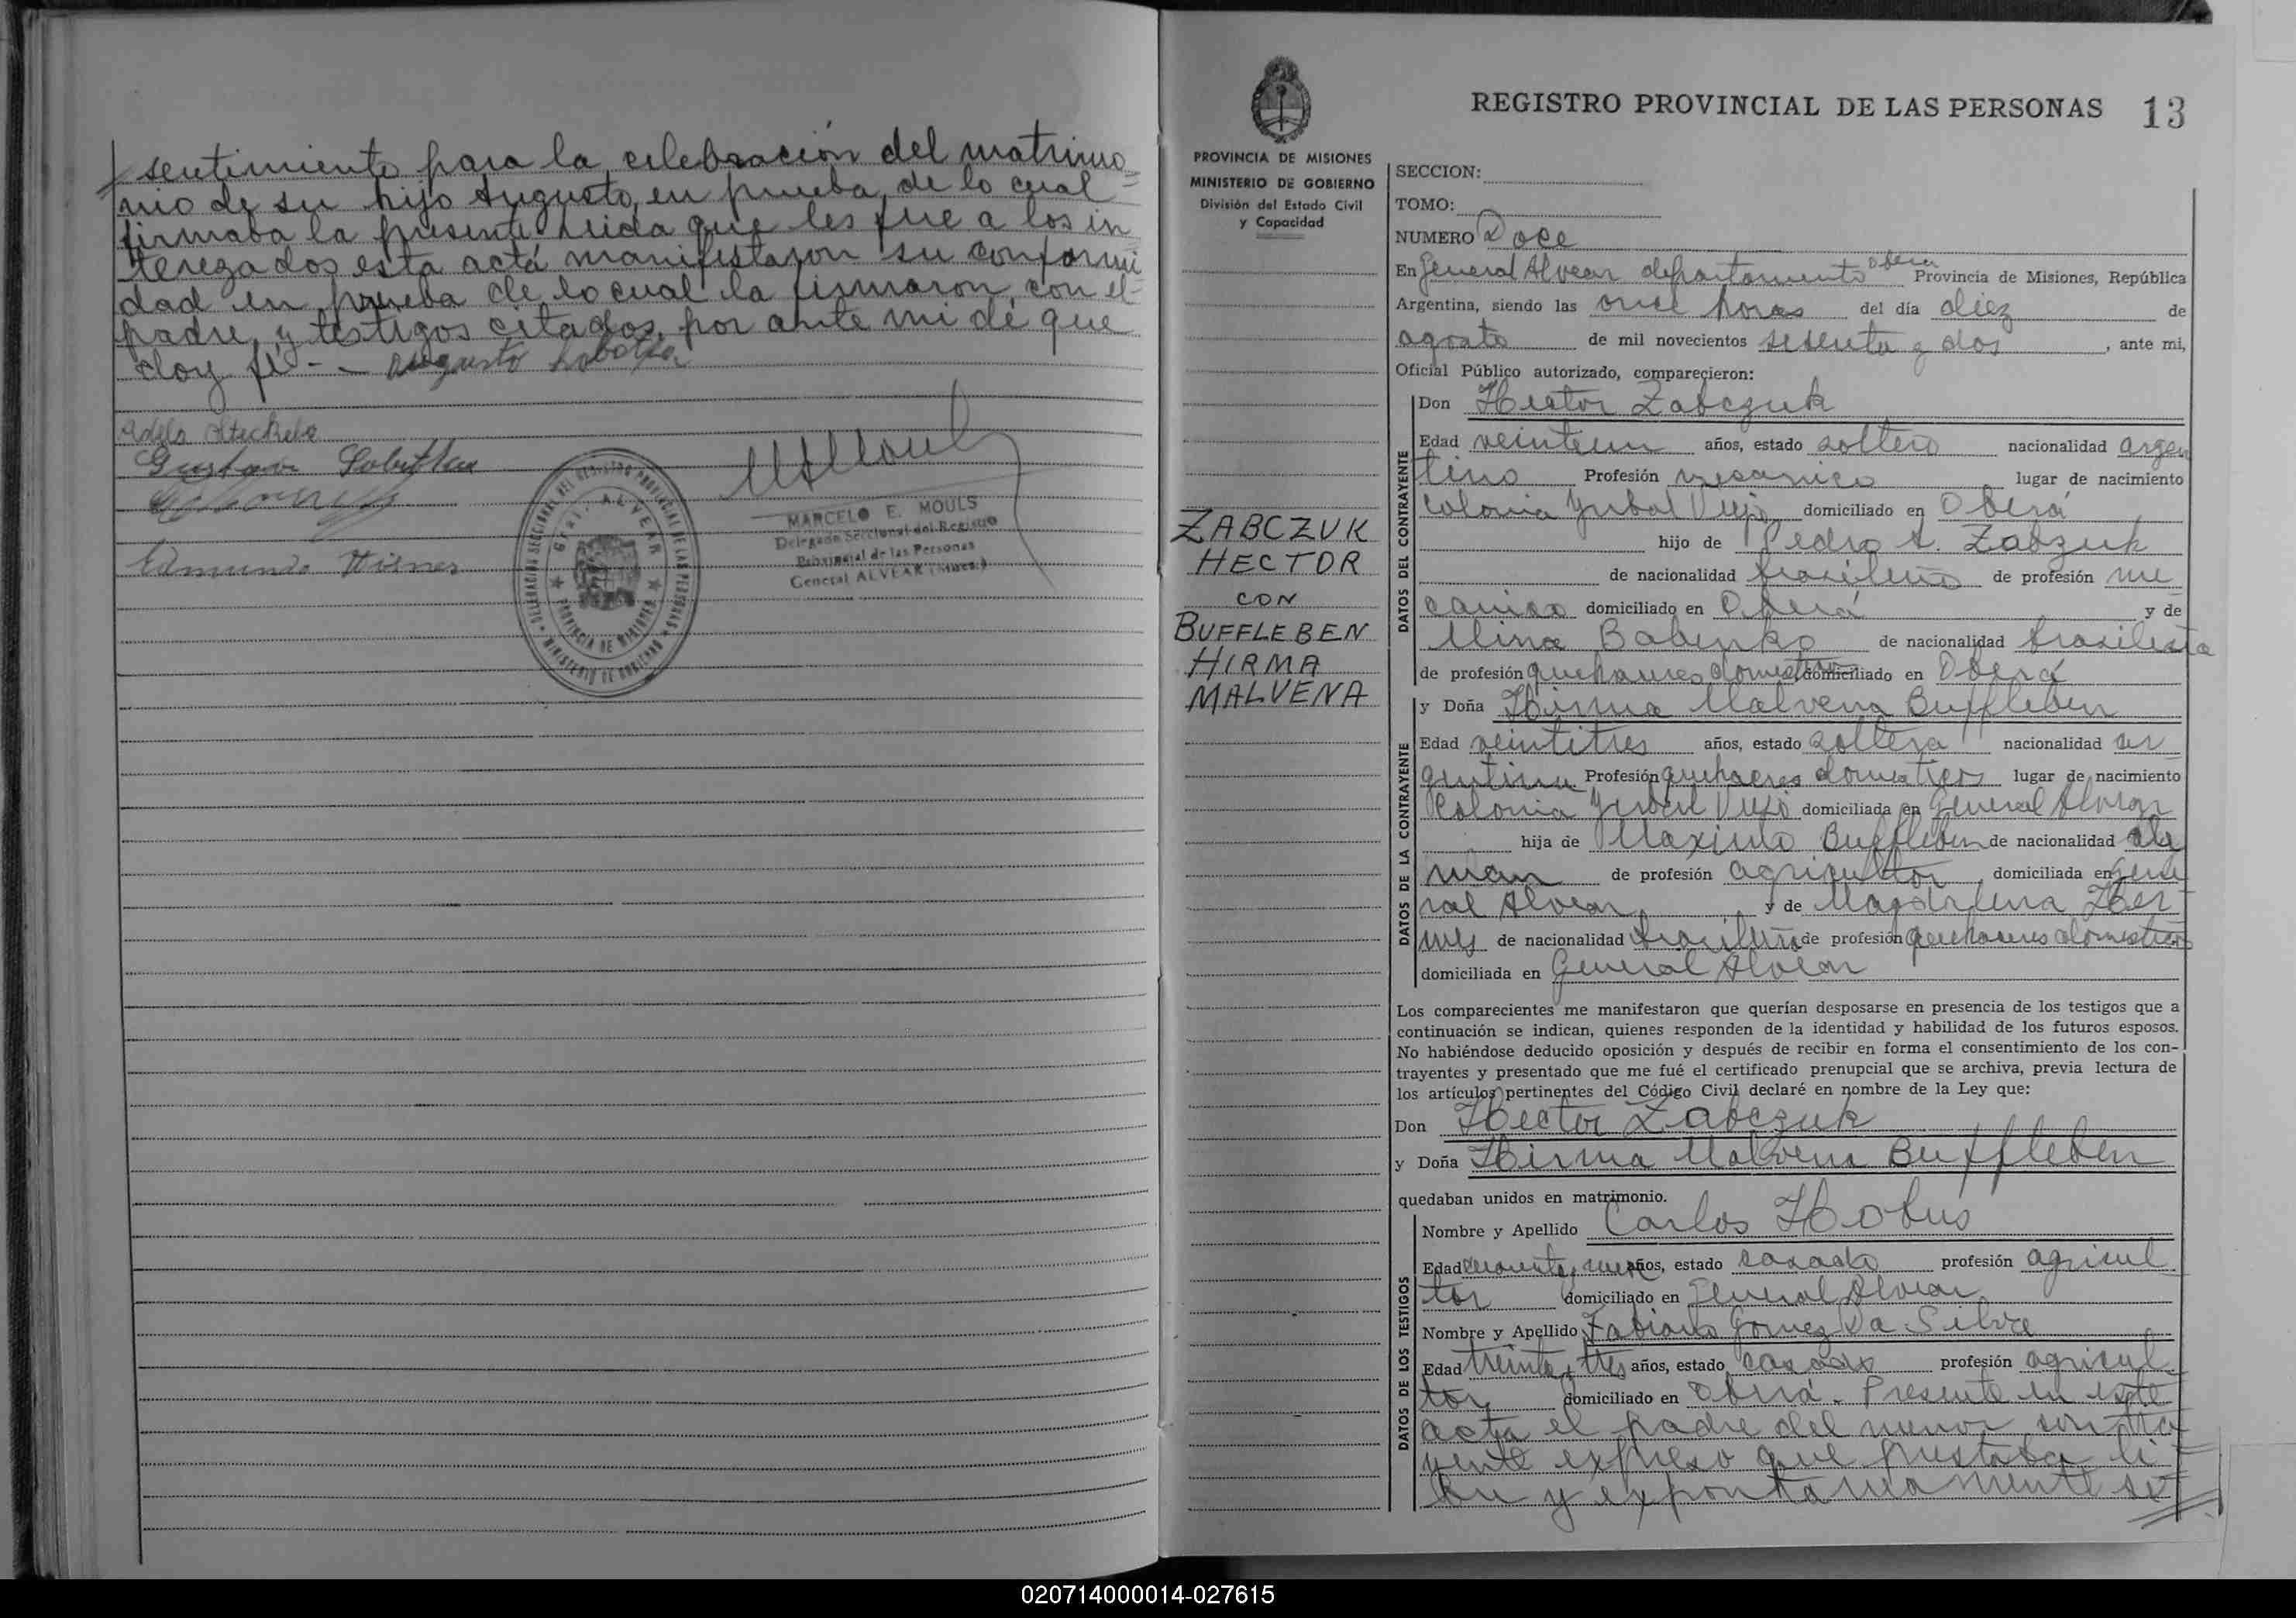 sentimiento para la celebración del matrimo
nio de su hijo Augusto, en prueba de lo cual
firmaba la presente. Leida que les fue a los in
terezados esta acta manifestaron su conformi
dad en prueba de lo cual la firmaron con el
padre y testigos citados, por ante mi dé que
doy fé.- - Augusto
Adela
Gustavo
Edmundo
DELEGACION SECCIONAL DEL REGISTRO PROVINCIAL DE LAS PERSONAS
GRAL. ALVEAR
PROVINCIA DE MISIONES
MINISTERIO DE GOBIERNO
MARCELO E. MOULS
Delegado Seccional del Registro
Provincial de las Personas
General ALVEAR (Mnes.)
REGISTRO PROVINCIAL DE LAS PERSONAS 13
PROVINCIA DE MISIONES
MINISTERIO DE GOBIERNO
División del Estado Civil
y Capacidad
ZABCZUK
HECTOR
CON
BUFFLEBEN
HIRMA
MALVENA
SECCION:
TOMO:
NUMERO Doce
En General Alvear departamento Obera Provincia de Misiones, República
Argentina, siendo las once horas del día diez de
agosto de mil novecientos sesenta y dos, ante mi,
Oficial Público autorizado, comparecieron:
DATOS DEL CONTRAYENTE
Don Hector Zabczuk
Edad veintiun años, estado soltero nacionalidad argen
tino Profesión mecanico lugar de nacimiento
Colonia Yerbal Viejo domiciliado en Oberá
hijo de Pedro A. Zabzuk
de nacionalidad brasileño de profesión me
canico domiciliado en Oberá y de
Mina Babenko de nacionalidad brasileña
de profesión quehaceres domesticos domiciliado en Oberá
DATOS DE LA CONTRAYENTE
y Doña Hirma Malvena Buffleben
Edad veintitres años, estado soltera nacionalidad ar
gentina Profesión quehaceres domesticos lugar de nacimiento
Colonia Yerbal Viejo domiciliada en General Alvear
hija de Maximo Buffleben de nacionalidad ale
man de profesión agricultor, domiciliada en Gene
ral Alvear y de Magdalena Her
mes de nacionalidad brasileña de profesión quehaceres domesticos
domiciliada en General Alvear
Los comparecientes me manifestaron que querían desposarse en presencia de los testigos que a
continuación se indican, quienes responden de la identidad y habilidad de los futuros esposos.
No habiéndose deducido oposición y después de recibir en forma el consentimiento de los con-
trayentes y presentado que me fué el certificado prenupcial que se archiva, previa lectura de
los artículos pertinentes del Código Civil declaré en nombre de la Ley que:
Don Hector Zabczuk
y Doña Hirma Malvena Buffleben
quedaban unidos en matrimonio.
DATOS DE LOS TESTIGOS
Nombre y Apellido Carlos Hobus
Edad cuarenta y años, estado casado profesión agricul
tor domiciliado en General Alvear
Nombre y Apellido Fabiano Gomez Da Silva
Edad treinta y tres años, estado casado profesión agricul
tor domiciliado en Oberá. Presente en este
acta el padre del menor contra
yente expreso que prestaba li
bre y expontaneamente su
020714000014-027615